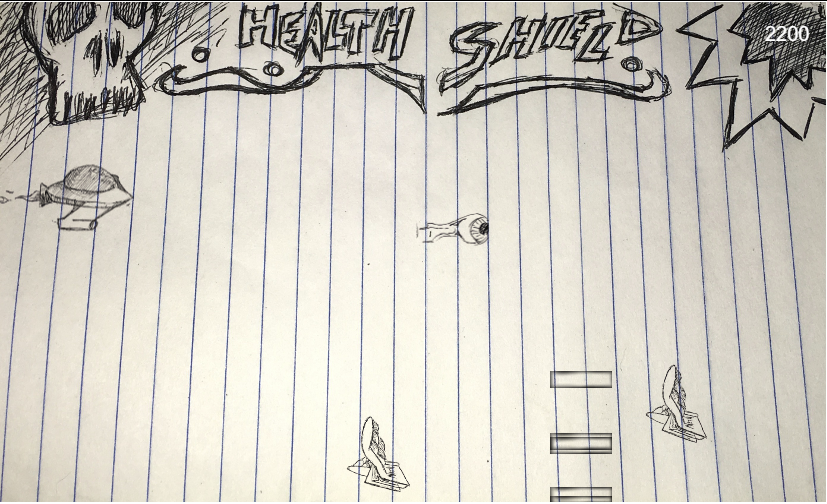 HEALTH SHIELD 2200